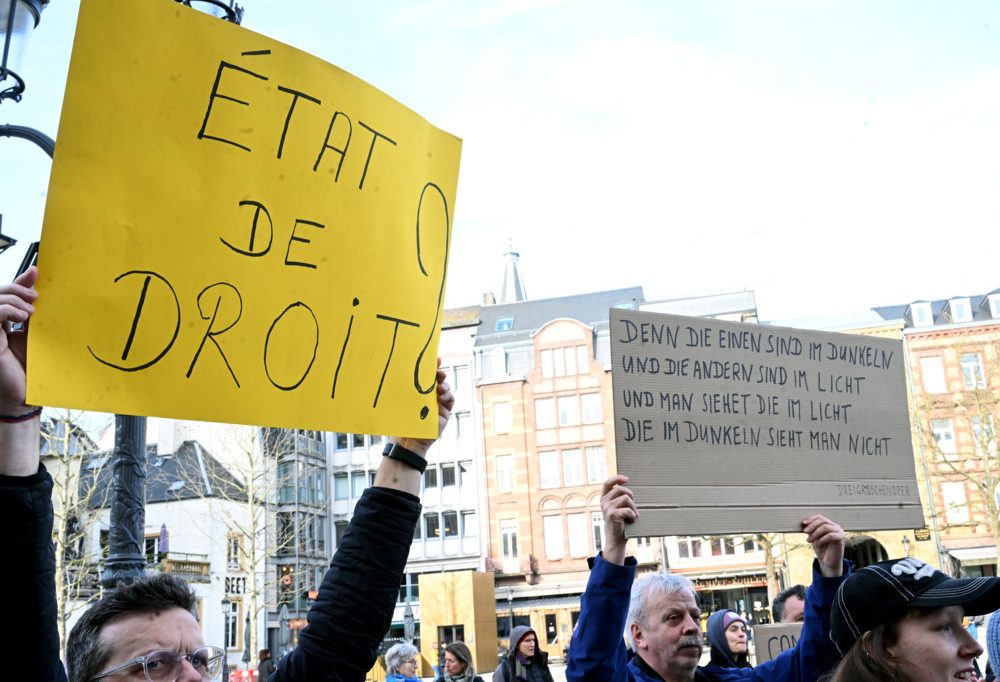 ÉTAT
DE
DROIT?
DENN DIE EINEN SIND IM DUNKELN
UND DIE ANDERN SIND IM LICHT
UND MAN SIEHET DIE IM LICHT
DIE IM DUNKELN SIEHT MAN NICHT
DREIGROSCHENOPER